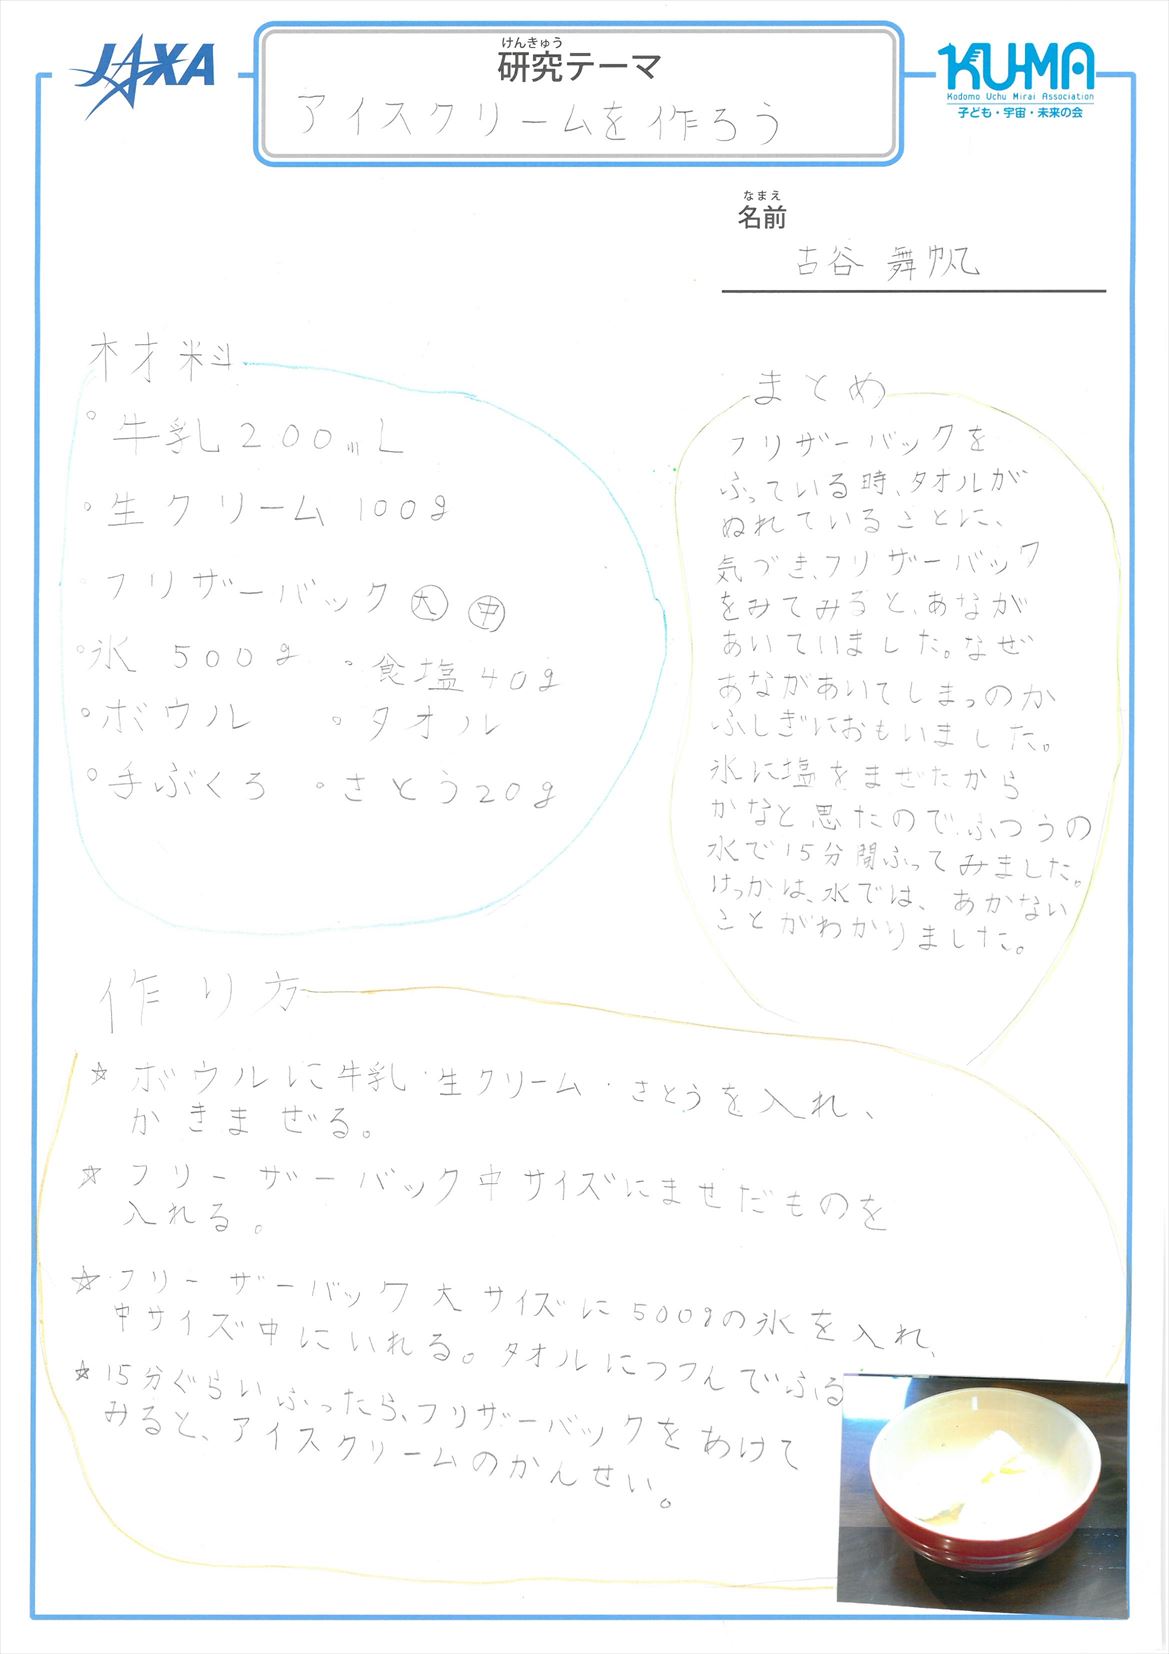 JAXA
けんきゅう
研究テーマ
アイスクリームを作ろう
KU-MA
Kodomo Uchu Mirai Association
子ども・宇宙・未来の会
なまえ
名前
古谷 舞帆
材料
。牛乳200mL
。生クリーム 100g
フリザーバック 大 中
。氷 500g 。食塩40g
。ボウル 。タオル
。手ぶくろ 。さとう20g
まとめ
フリザーバックを
ふっている時、タオルが
ぬれていることに、
気づき、フリザーバック
をみてみると、あなが
あいていました。なぜ
あながあいてしまっのか
ふしぎにおもいました。
氷に塩をまぜたから
かなと思たので、ふつうの
水で15分間ふってみました。
けっかは、水では、あかない
ことがわかりました。
作り方
☆ ボウルに牛乳・生クリーム・さとうを入れ、
かきまぜる。
☆ フリーザーバック中サイズにませだものを
入れる。
☆ フリーザーバック大サイズに500gの氷を入れ、
中サイズ中にいれる。タオルにつつんでふる
☆ 15分ぐらいふったら、フリザーバックをあけて
みると、アイスクリームのかんせい。